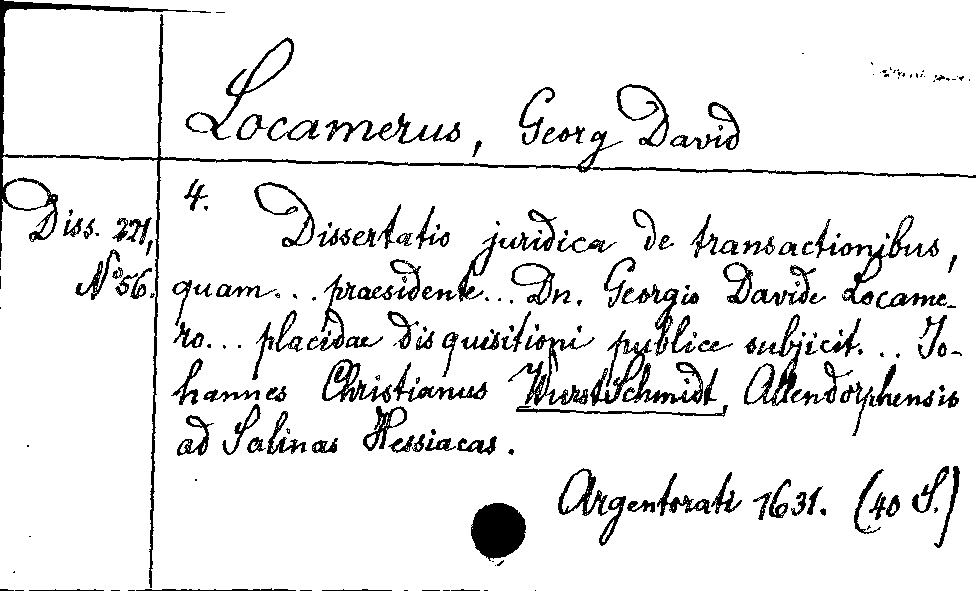 Locamerus, Georg David
Diss. 221,
No 56.
4. Dissertatio juridica de transactionibus,
quam... praesidente... Dn. Georgio Davide Locame-
ro... placidae disquisitioni publice subjicit... Jo-
hannes Christianus WurstSchmidt, Allendorphensis
ad Salinas Hessiacas.
Argentorati 1631. (40 S.)